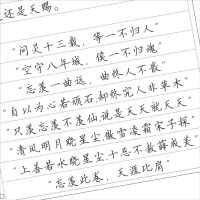 还是天赐。
"问灵十三载，等一不归人"
"空守八年城，候一不归魂"
"忘羡一曲远，曲终人不散"
"自以为心若顽石，却终究人非草木"
"只羡忘羡不羡仙，说是天天就天天"
"清风明月晓星尘，傲雪凌霜宋子琛"
"上善若水晓星尘，十恶不赦薛成美"
"忘羡此卷，天涯比肩"